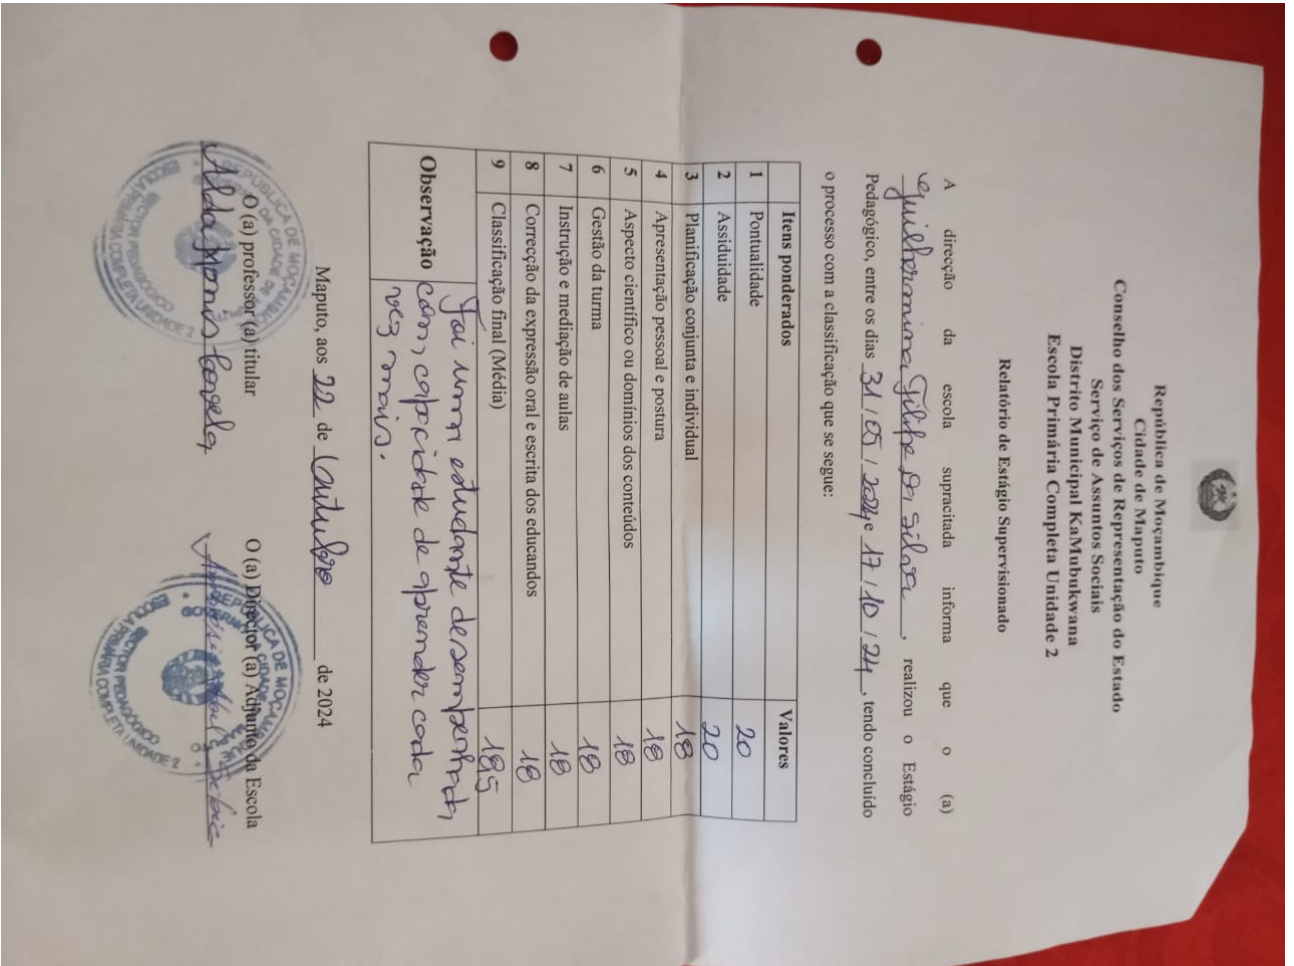 República de Moçambique
Cidade de Maputo
Conselho dos Serviços de Representação do Estado
Serviço de Assuntos Sociais
Distrito Municipal KaMubukwana
Escola Primária Completa Unidade 2
Relatório de Estágio Supervisionado
A direcção da escola supracitada informa que o (a)
Guilhermina Filipe Da Silva, realizou o Estágio
Pedagógico, entre os dias 31/05/2024 e 17/10/24, tendo concluído
o processo com a classificação que se segue:
Itens ponderados Valores
1 Pontualidade 20
2 Assiduidade 20
3 Planificação conjunta e individual 18
4 Apresentação pessoal e postura 18
5 Aspecto científico ou domínios dos conteúdos 18
6 Gestão da turma 18
7 Instrução e mediação de aulas 18
8 Correcção da expressão oral e escrita dos educandos 18
9 Classificação final (Média) 18,5
Observação Foi uma estudante desempenhada,
com capacidade de aprender cada
vez mais.
Maputo, aos 22 de Outubro de 2024
O (a) professor (a) titular O (a) Director (a) Adjunto da Escola
Alda
REPÚBLICA DE MOÇAMBIQUE
DA CIDADE DE
SECTOR PEDAGÓGICO
ESCOLA PRIMÁRIA COMPLETA UNIDADE 2
REPÚBLICA DE MOÇAMBIQUE
CIDADE
SECTOR PEDAGÓGICO
ESCOLA PRIMÁRIA COMPLETA UNIDADE 2